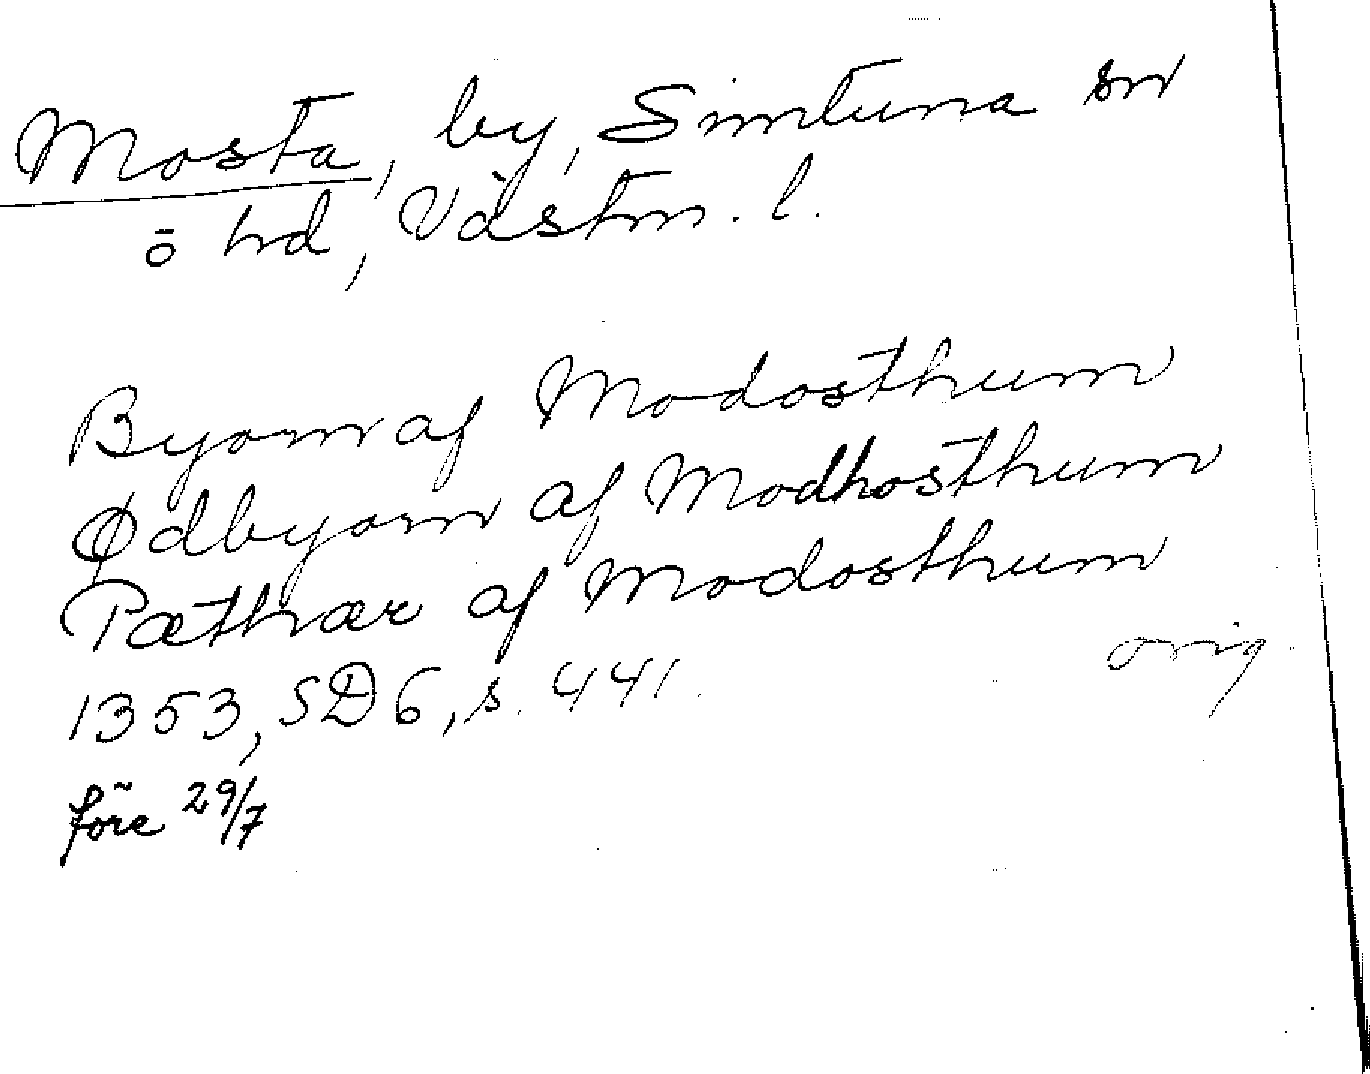 Mosta, by, Simtuna sn
o hd, Västm. l.
Byorn af Modosthum
Ødbyorn af Modhosthum
Pæthær af Modosthum
orig.
1353, SD 6, s. 441.
före 29/7